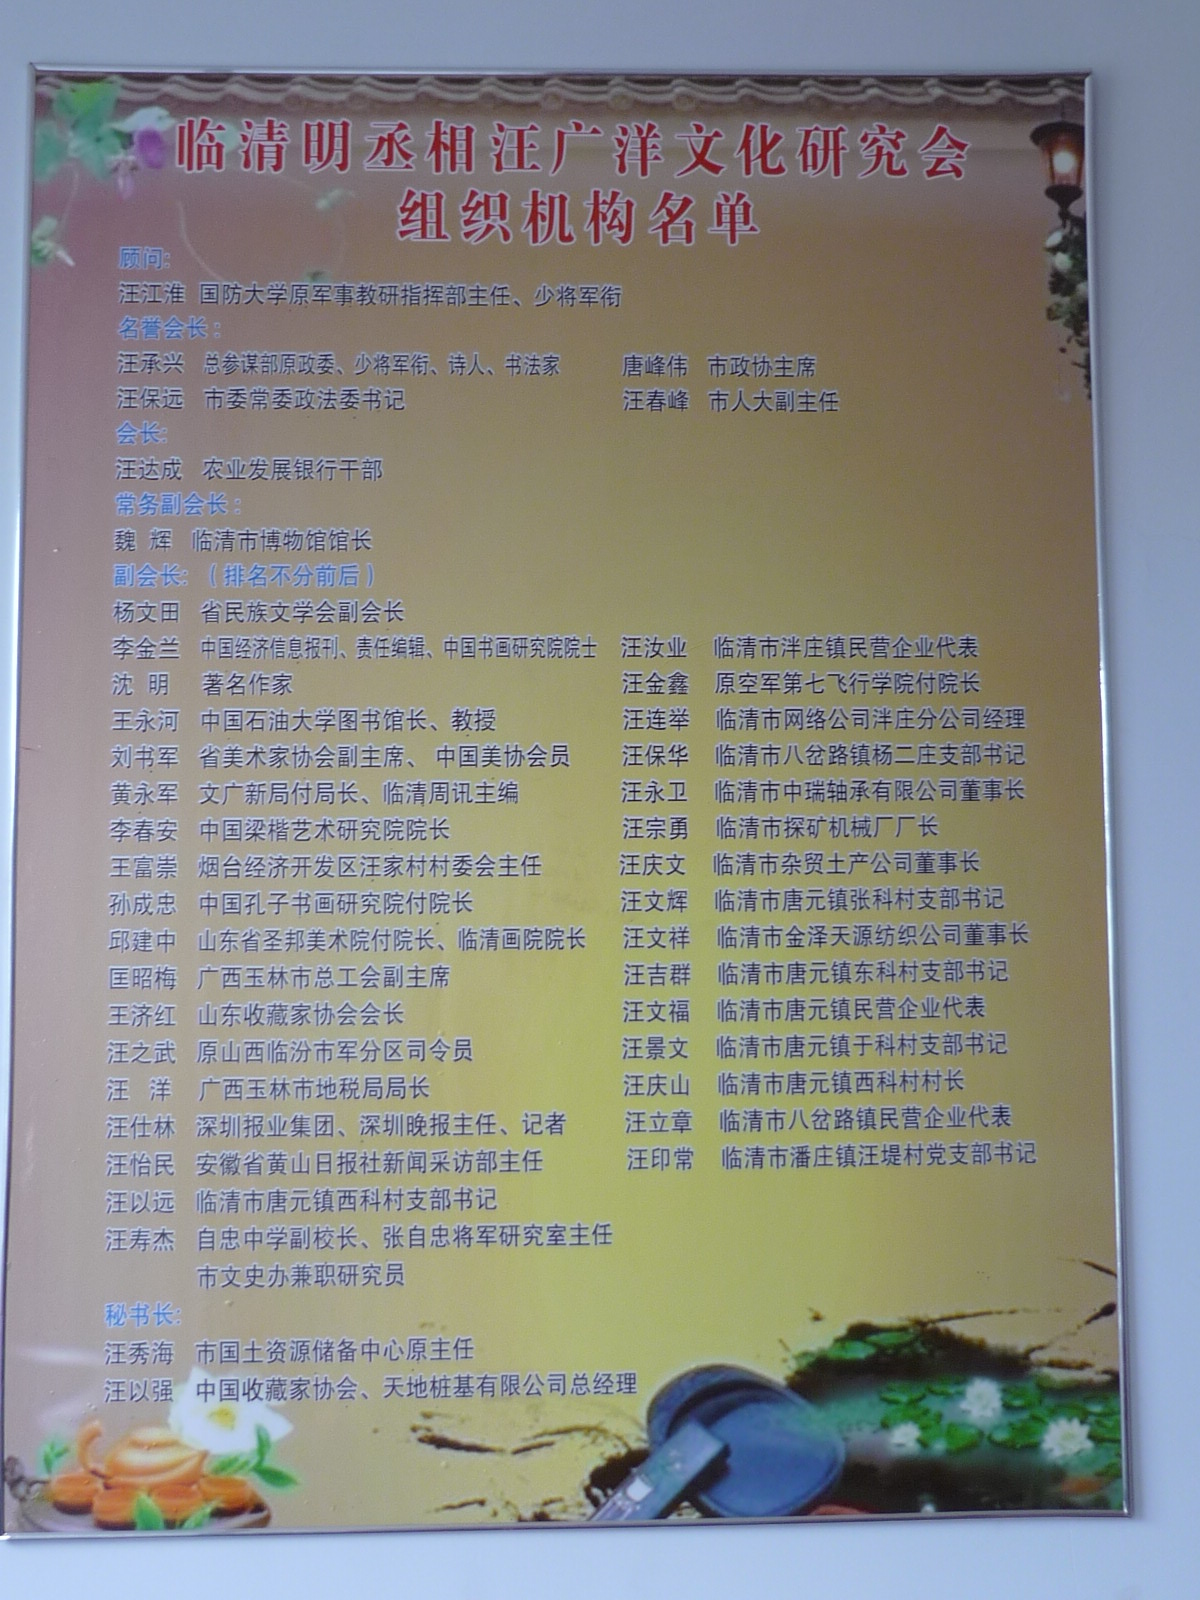 临清明丞相汪广洋文化研究会
组织机构名单
顾问:
汪江淮 国防大学原军事教研指挥部主任、少将军衔
名誉会长:
汪承兴 总参谋部原政委、少将军衔、诗人、书法家 唐峰伟 市政协主席
汪保远 市委常委政法委书记 汪春峰 市人大副主任
会长:
汪达成 农业发展银行干部
常务副会长:
魏 辉 临清市博物馆馆长
副会长:(排名不分前后)
杨文田 省民族文学会副会长
李金兰 中国经济信息报刊、责任编辑、中国书画研究院院士 汪汝业 临清市泮庄镇民营企业代表
沈 明 著名作家 汪金鑫 原空军第七飞行学院付院长
王永河 中国石油大学图书馆长、教授 汪连举 临清市网络公司泮庄分公司经理
刘书军 省美术家协会副主席、 中国美协会员 汪保华 临清市八岔路镇杨二庄支部书记
黄永军 文广新局付局长、临清周讯主编 汪永卫 临清市中瑞轴承有限公司董事长
李春安 中国梁楷艺术研究院院长 汪宗勇 临清市探矿机械厂厂长
王富崇 烟台经济开发区汪家村村委会主任 汪庆文 临清市杂贸土产公司董事长
孙成忠 中国孔子书画研究院付院长 汪文辉 临清市唐元镇张科村支部书记
邱建中 山东省圣邦美术院付院长、临清画院院长 汪文祥 临清市金泽天源纺织公司董事长
匡昭梅 广西玉林市总工会副主席 汪吉群 临清市唐元镇东科村支部书记
王济红 山东收藏家协会会长 汪文福 临清市唐元镇民营企业代表
汪之武 原山西临汾市军分区司令员 汪景文 临清市唐元镇于科村支部书记
汪 洋 广西玉林市地税局局长 汪庆山 临清市唐元镇西科村村长
汪仕林 深圳报业集团、深圳晚报主任、记者 汪立章 临清市八岔路镇民营企业代表
汪怡民 安徽省黄山日报社新闻采访部主任 汪印常 临清市潘庄镇汪堤村党支部书记
汪以远 临清市唐元镇西科村支部书记
汪寿杰 自忠中学副校长、张自忠将军研究室主任
市文史办兼职研究员
秘书长:
汪秀海 市国土资源储备中心原主任
汪以强 中国收藏家协会、天地桩基有限公司总经理